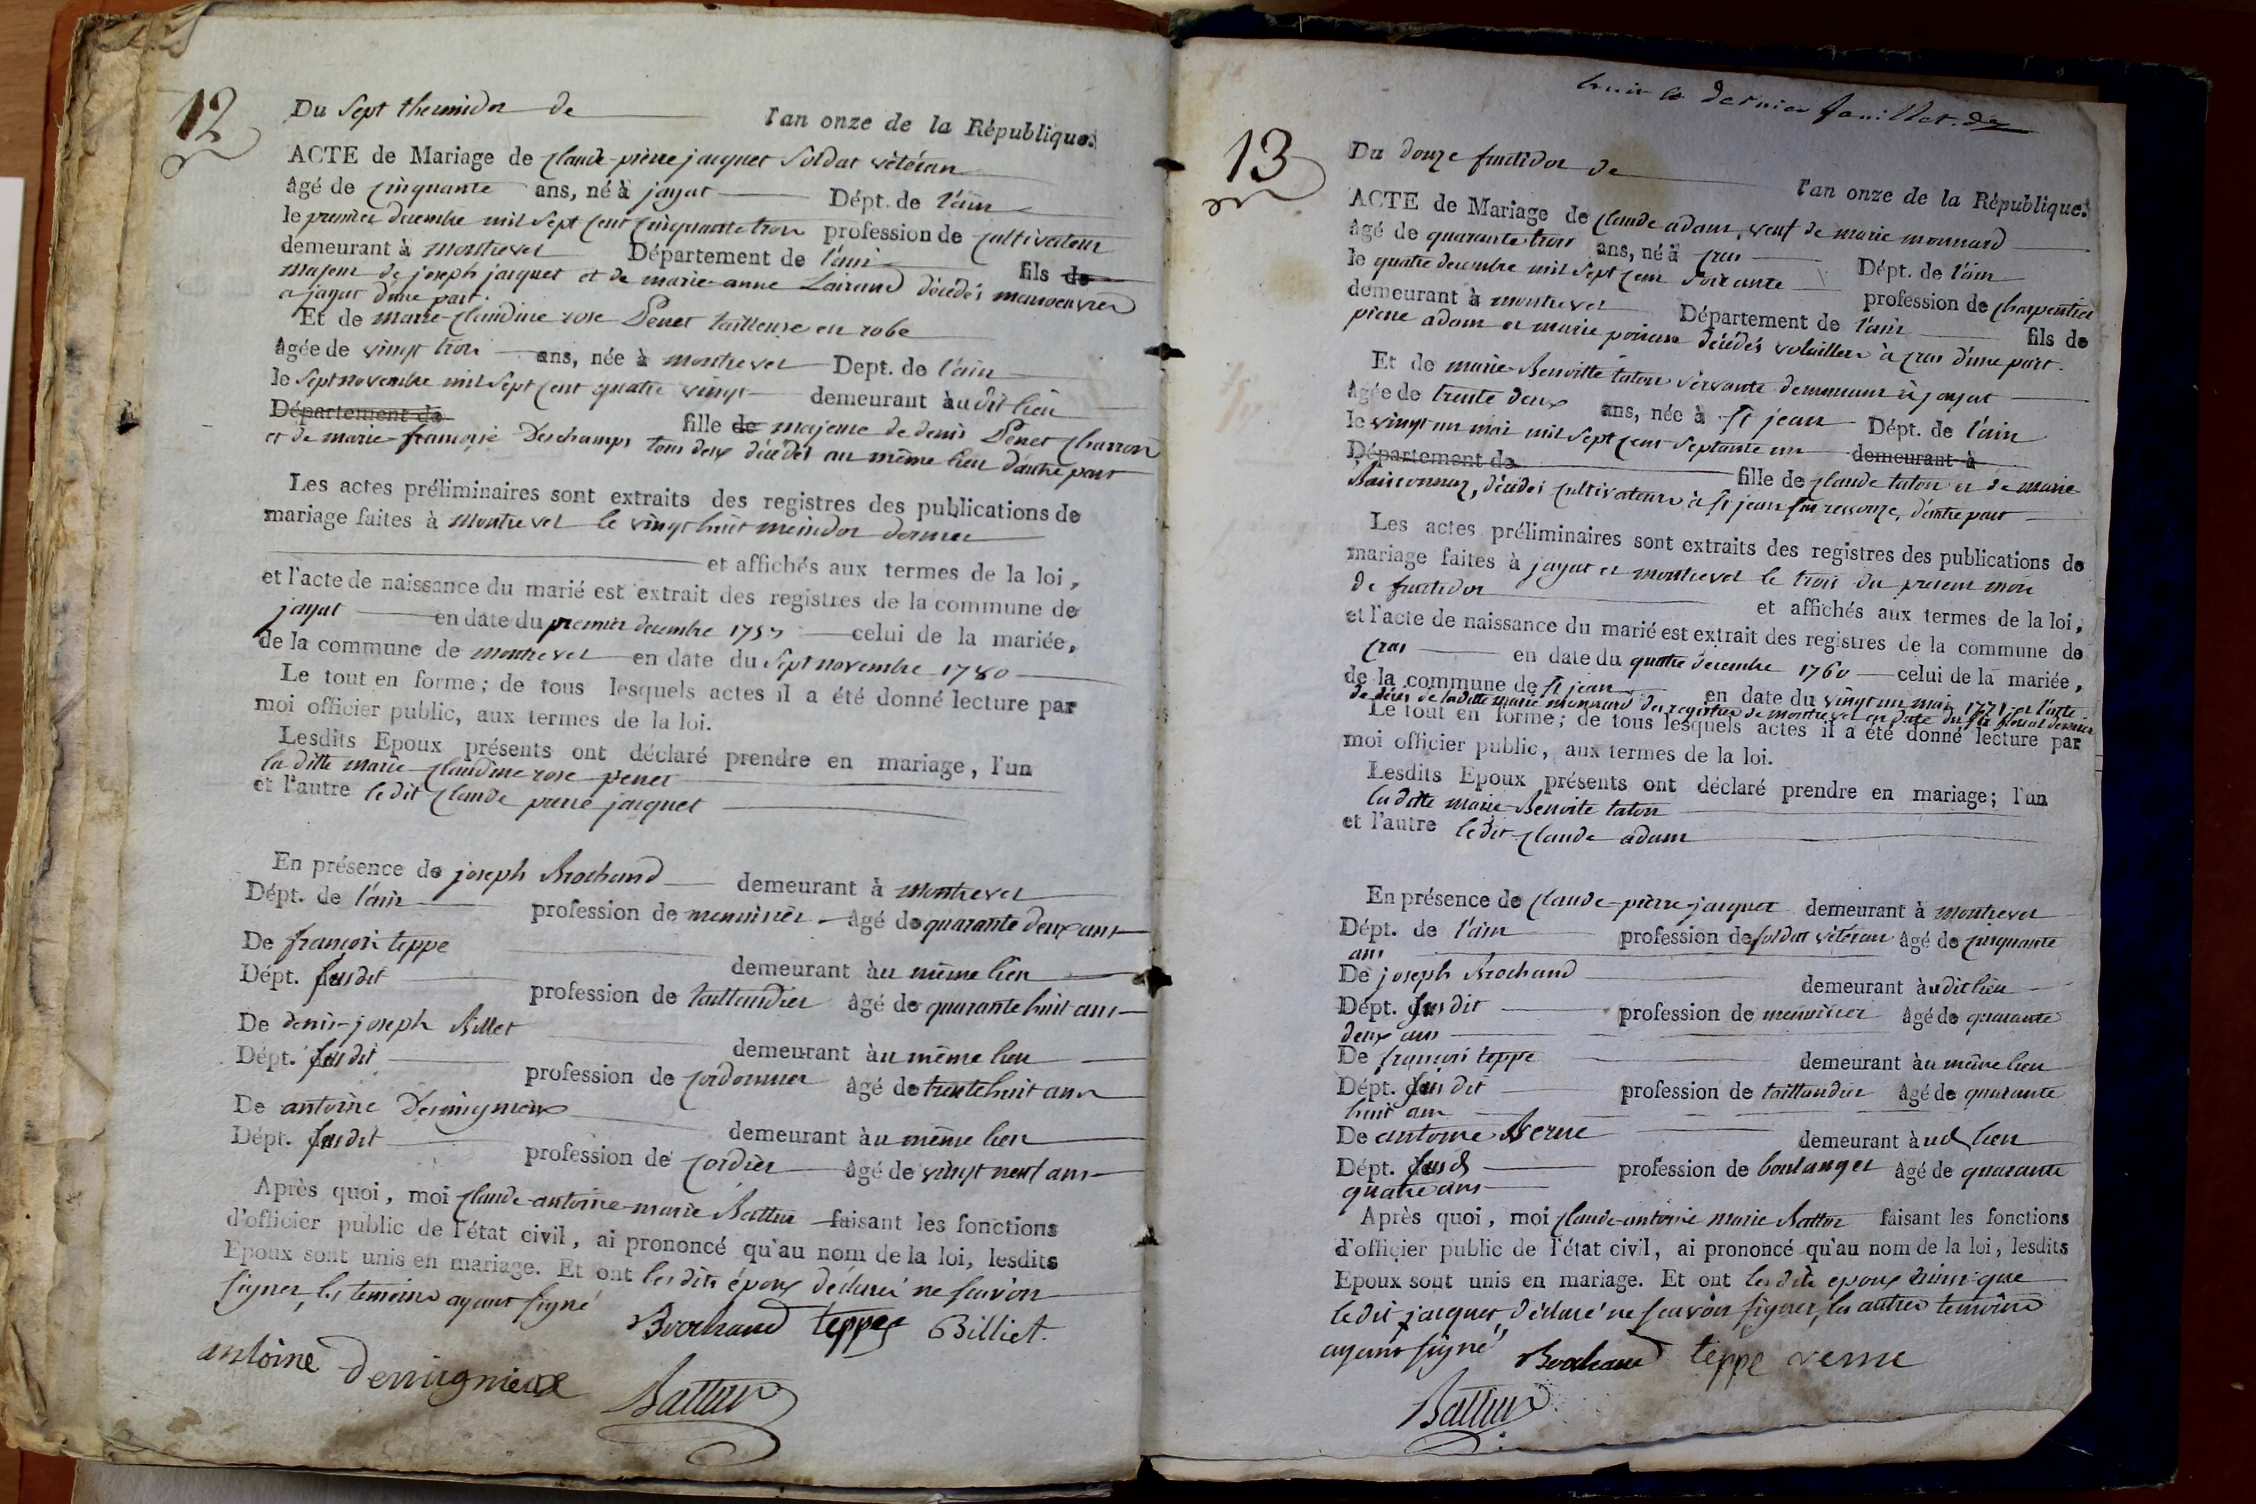 12
Du sept thermidor de l'an onze de la République.
ACTE de Mariage de claude-pierre jacquet soldat vétéran
âgé de cinquante ans, né à jayat Dépt. de l'ain
le premier decembre mil sept cent cinquante trois profession de cultivateur
demeurant à montrevel Département de l'ain fils de
majeur de joseph jacquet et de marie-anne décédés manoeuvrer
a jayat d'une part.
Et de marie-claudine rose Penet tailleuse en robe
âgée de vingt trois ans, née à montrevel Dept. de l'ain
le sept novembre mil sept cent quatre vingt demeurant àu dit lieu
Département de fille de majeure de denis Penet charron
et de marie-françoise Deschamps tous deux décédés au même lieu d'autre part
Les actes préliminaires sont extraits des registres des publications de
mariage faites à montrevel le vingt huit messidor dernier
et affichés aux termes de la loi,
et l'acte de naissance du marié est extrait des registres de la commune de
jayat en date du premier decembre 1753 celui de la mariée,
de la commune de montrevel en date du sept novembre 1780
Le tout en forme; de tous lesquels actes il a été donné lecture par
moi officier public, aux termes de la loi.
Lesdits Epoux présents ont déclaré prendre en mariage, l'un
la ditte marie-claudine rose penet
et l'autre le dit claude pierre jacquet
En présence de joseph Brochand demeurant à montrevel
Dépt. de l'ain profession de menuisier âgé de quarante deux ans
De françois teppe demeurant àu même lieu
Dépt. susdit profession de taillandier âgé de quarante huit ans
De denis-joseph Billet demeurant àu même lieu
Dépt. susdit profession de cordonnier âgé de trente huit ans
De antoine Demigneux demeurant àu même lieu
Dépt. susdit profession de cordier âgé de vingt neuf ans
Après quoi, moi claude-antoine-marie Battur faisant les fonctions
d'officier public de l'état civil, ai prononcé qu'au nom de la loi, lesdits
Epoux sont unis en mariage. Et ont les dits époux déclaré ne scavoir
signer, les temoins ayant signé
Brochand teppe Billiet.
antoine
Battur
dernier feuillet.
13
Du douze fructidor de l'an onze de la République.
ACTE de Mariage de claude adam, veuf de marie monnard
âgé de quarante trois ans, né à cras Dépt. de l'ain
le quatre decembre mil sept cent soixante profession de charpentier
demeurant à montrevel Département de l'ain fils de
pierre adam et marie décédés volailler à cras d'une part.
Et de marie-Benoitte taton servante demeurant à jayat
âgée de trente deux ans, née à st jean Dépt. de l'ain
le vingt un mai mil sept cent septante un demeurant à
Département de fille de claude taton et de marie
décédés cultivateurs à st jean sur ressouze, d'autre part
Les actes préliminaires sont extraits des registres des publications de
mariage faites à jayat et montrevel le trois du present mois
de fructidor et affichés aux termes de la loi,
et l'acte de naissance du marié est extrait des registres de la commune de
cras en date du quatre decembre 1760 celui de la mariée,
de la commune de st jean en date du vingt un mai 1771 et l'acte
de décès de laditte marie monnard des registres de montrevel en date du six floréal dernier
Le tout en forme; de tous lesquels actes il a été donné lecture par
moi officier public, aux termes de la loi.
Lesdits Epoux présents ont déclaré prendre en mariage; l'un
la ditte marie-Benoite taton
et l'autre le dit claude adam
En présence de claude-pierre jacquet demeurant à montrevel
Dépt. de l'ain profession de soldat vétéran âgé de cinquante
ans
De joseph Brochand demeurant àudit lieu
Dépt. susdit profession de menuisier âgé de quarante
deux ans
De françois teppe demeurant àu même lieu
Dépt. susdit profession de taillandier âgé de quarante
huit ans
De antoine Verne demeurant àud lieu
Dépt. susd profession de boulanger âgé de quarante
quatre ans
Après quoi, moi claude-antoine marie Battur faisant les fonctions
d'officier public de l'état civil, ai prononcé qu'au nom de la loi, lesdits
Epoux sont unis en mariage. Et ont les dits epoux ainsi que
le dit jacquet, déclaré ne scavoir signer, les autres temoins
ayant signé
Brochand teppe verne
Battur